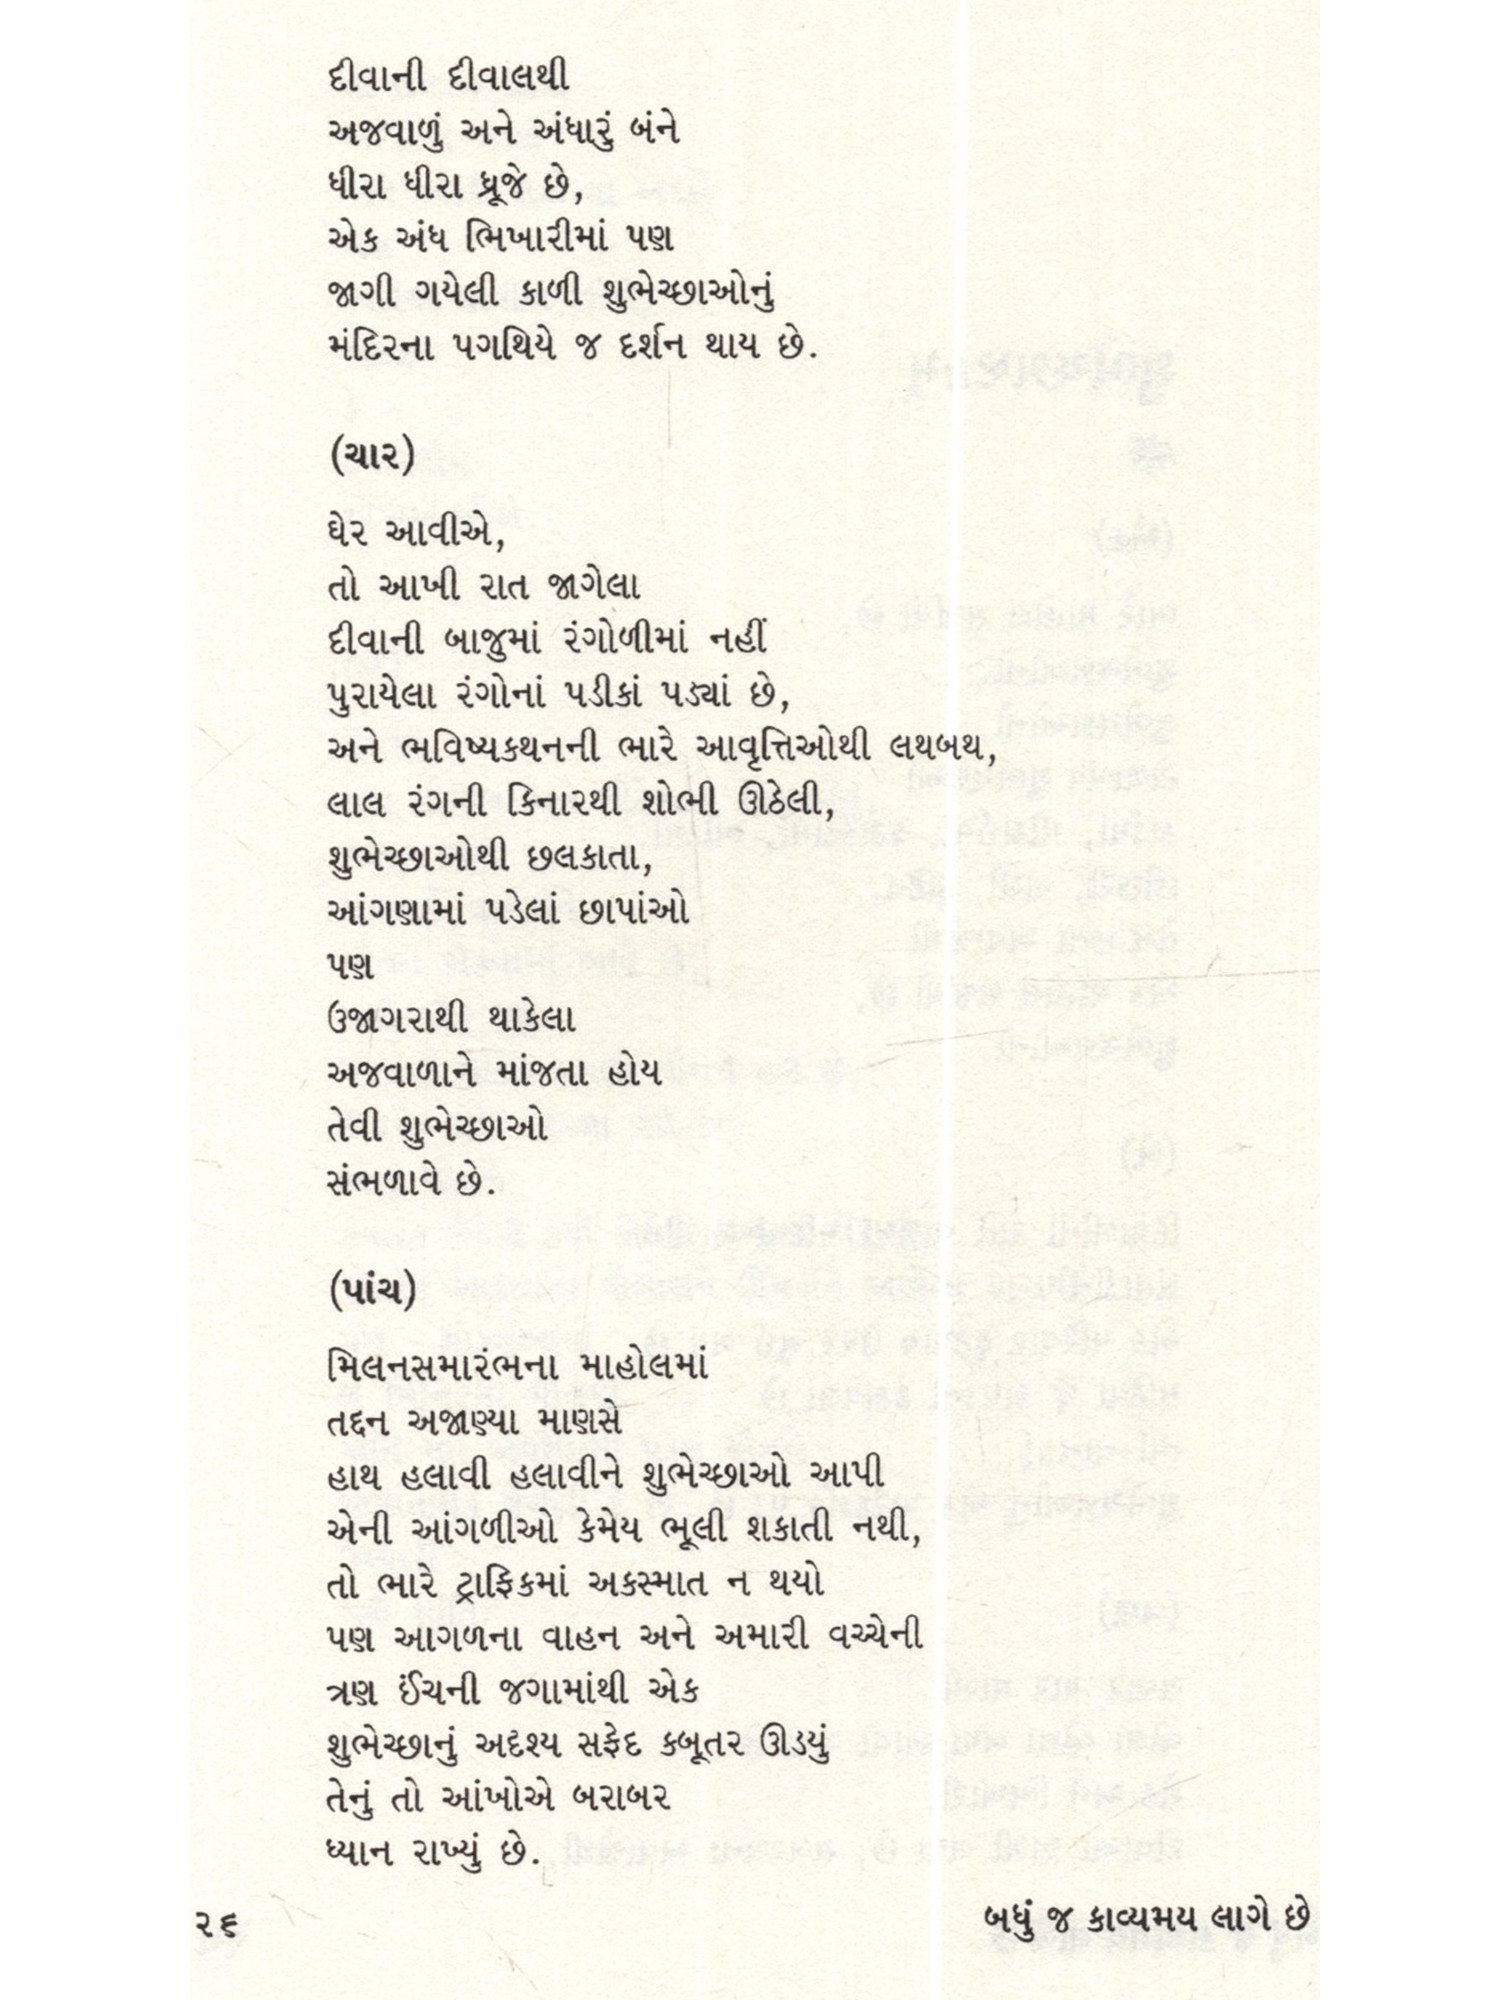 દીવાની દીવાલથી
અજવાળું અને અંધારું બંને
ધીરા ધીરા ધ્રૂજે છે,
એક અંધ ભિખારીમાં પણ
જાગી ગયેલી કાળી શુભેચ્છાઓનું
મંદિરના પગથિયે જ દર્શન થાય છે.
(ચાર)
ઘેર આવીએ,
તો આખી રાત જાગેલા
દીવાની બાજુમાં રંગોળીમાં નહીં
પુરાયેલા રંગોનાં પડીકાં પડ્યાં છે,
અને ભવિષ્યકથનની ભારે આવૃત્તિઓથી લથબથ,
લાલ રંગની કિનારથી શોભી ઊઠેલી,
શુભેચ્છાઓથી છલકાતા,
આંગણામાં પડેલાં છાપાંઓ
પણ
ઉજાગરાથી થાકેલા
અજવાળાને માંજતા હોય
તેવી શુભેચ્છાઓ
સંભળાવે છે.
(પાંચ)
મિલનસમારંભના માહોલમાં
તદ્દન અજાણ્યા માણસે
હાથ હલાવી હલાવીને શુભેચ્છાઓ આપી
એની આંગળીઓ કેમેય ભૂલી શકાતી નથી,
તો ભારે ટ્રાફિકમાં અકસ્માત ન થયો
પણ આગળના વાહન અને અમારી વચ્ચેની
ત્રણ ઈંચની જગામાંથી એક
શુભેચ્છાનું અદૃશ્ય સફેદ કબૂતર ઊડયું
તેનું તો આંખોએ બરાબર
ધ્યાન રાખ્યું છે.
૨૬
બધું જ કાવ્યમય લાગે છે